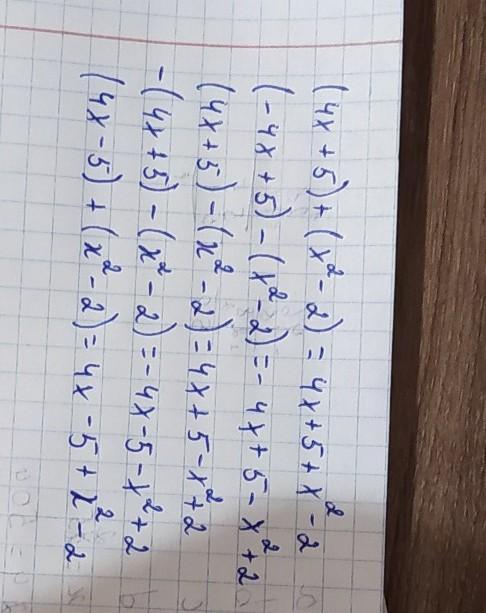 (4x+5)+(x²-2)=4x+5+x²-2
(-4x+5)-(x²-2)=-4x+5-x²+2
(4x+5)-(x²-2)=4x+5-x²+2
-(4x+5)-(x²-2)=-4x-5-x²+2
(4x-5)+(x²-2)=4x-5+x²-2